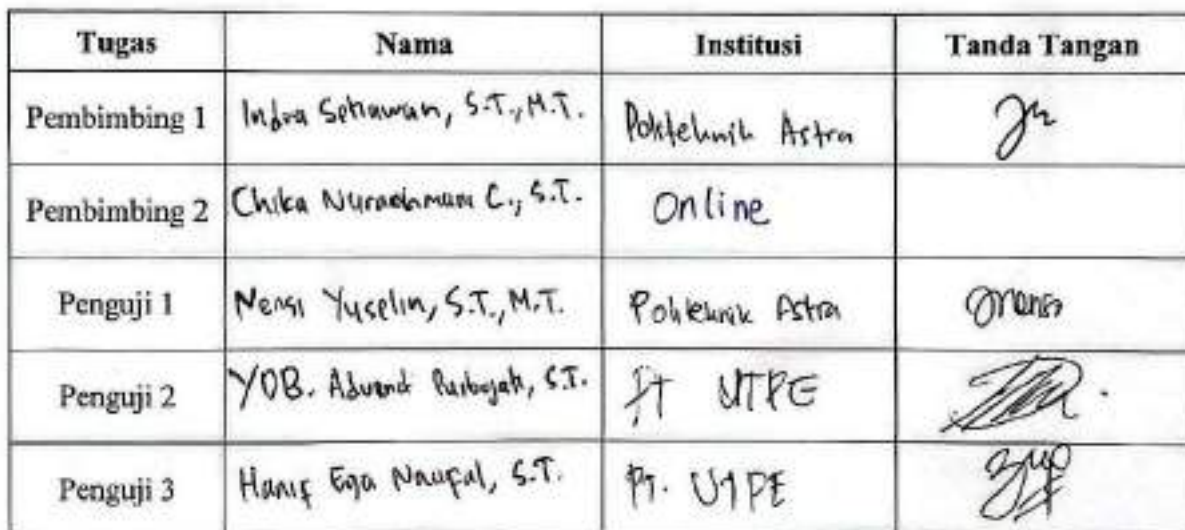 Tugas Nama Institusi Tanda Tangan
Pembimbing 1 Indra Setiawan, S.T., M.T. Politeknik Astra
Pembimbing 2 Chika Nurrachman C., S.T. Online
Penguji 1 Nensi Yuselin, S.T., M.T. Politeknik Astra Nensi
Penguji 2 YOB. S.T. PT UTPE
Penguji 3 Hanif Ega Naufal, S.T. PT. UTPE